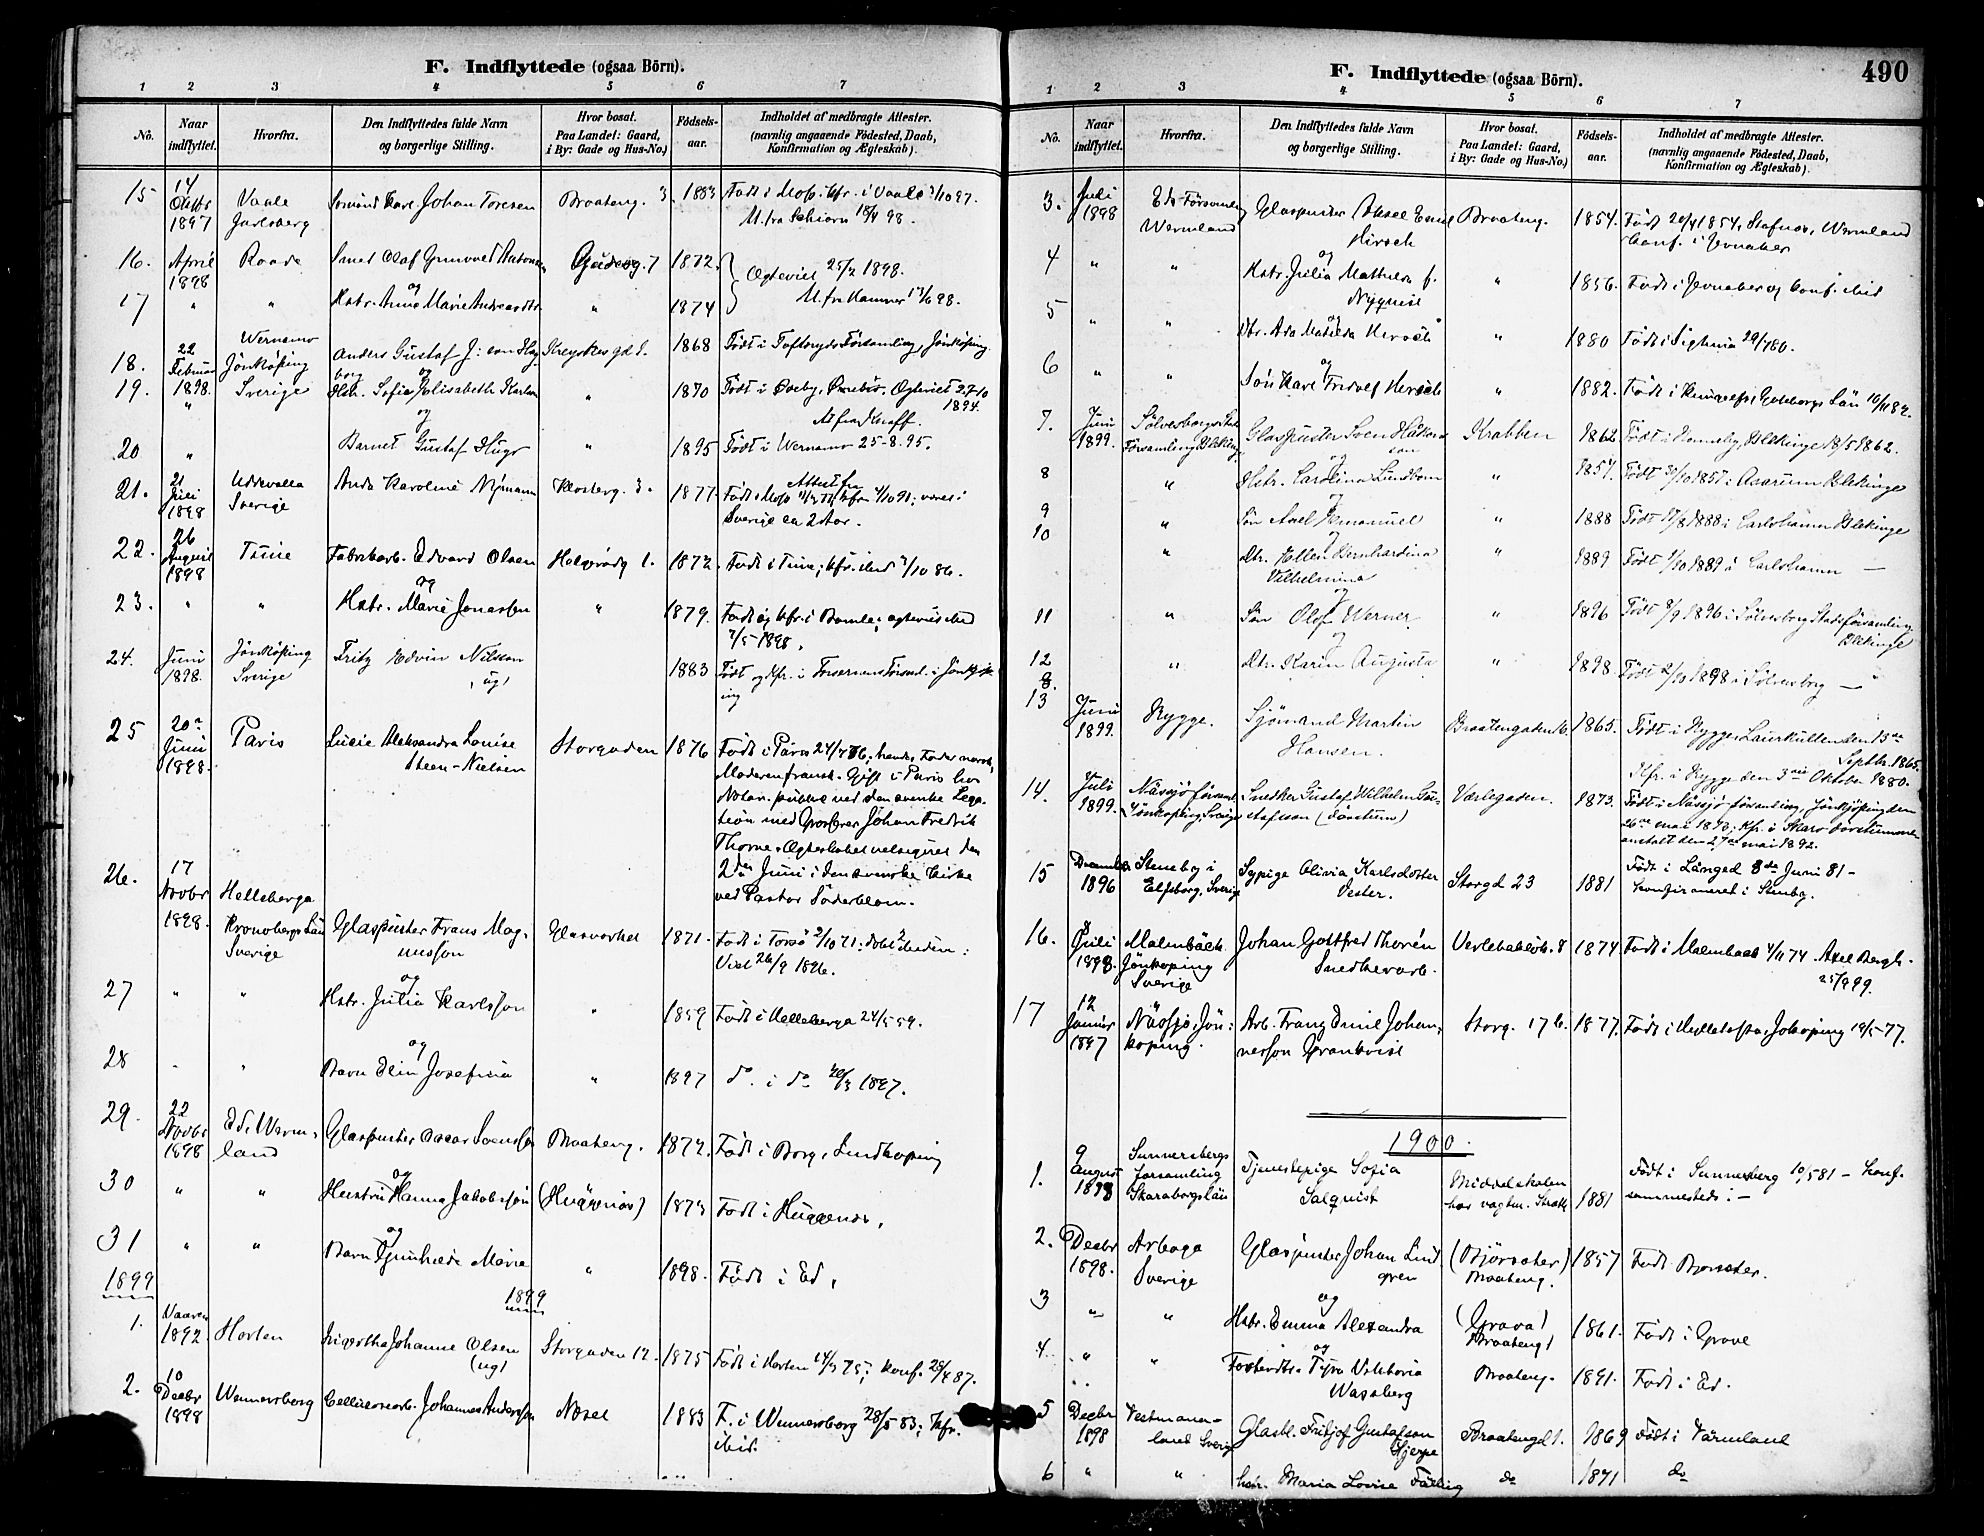 F. Indflyttede (ogsaa Börn).
1 2 3 4 5 6 7
No. Naar indflyttet. Hvorfra. Den Indflyttedes fulde Navn og borgerlige Stilling. Hvor bosat. Paa Landet: Gaard, i By: Gade og Hus-No.) Födsels-aar. Indholdet af medbragte Attester. (navnlig angaaende Födested, Daab, Konfirmation og Ægteskab).
15 14 Oktbr 1897 Vaale Jarlsberg Johan Toresen Braateng. 3. 1883 Født i Moss. kfr. i Vaale 3/10 97.
M. fra 18/4 98.
16. April 1898 Raade Smed Olaf 7 1872. Ægteviet 25/2 1898.
og
17 " " Hstr. Anna Marie " 1874 M. fra 98.
18. 22 Februar 1898. Wernamo Jönköping Sverige Anders Gustaf J: 1868 Født i Tofteryds Församling, Jönköping.
og
19. " Hstr. Sofia Elisabeth " 1870 Født i Ægteviet 27-10 1894.
og
20 " Barnet Gustaf Hugo " 1895 Født i Wernamo 25-8-95.
21. 21 Juli 1898 Uddevalla Sverige Anda Karoline Nymann Klosterg. 3. 1877 Attest fra
Født i Moss kfr. været i
Sverige ca 2 Aar.
22. 26 August 1898 Tune Fabrikarb. Edvard Olsen Helgerødg 1. 1872. Født i Tune; kfr. ibid 86.
og
23. " " Hstr. Marie Jonassen " 1879. Født og kfr. i Bamle; ægteviet ibid
1898.
24. Juni 1898. Jönköping Sverige Fritz Edvin Nilsson ug) 1883 Født og kfr. i Forserums Försml. i Jönköping
25 20de Juni 1898. Paris Lucie Aleksandra Louise Steen-Nielsen Storgaden 1876 Født i Paris 24/7 76; hendes Fader norsk,
Moderen fransk. Gift i Paris hos
Notar. public ved den svenske Lega-
tion med Grosserer Johan Fredrik
Thorne. Ægteskabet velsignet den
2den Juni i den svenske Kirke
ved Pastor Söderblom.
26. 17 Novbr 1898. Helleberga Kronobergs Län Sverige Glaspuster Frans Magnusson Glasverket 1871. Født i Torsö 2/10 71; døbt ibidem:
Viet 26/9 1896.
og
27 " " Hstr. Julia Karlsson " 1859 Født i Helleberga 24/5 59.
og
28 " " Barn Elin Josefina " 1897 do. i do 1897.
29. 22 Novbr 1898 Ed i Wermland Glaspuster Oscar Svensson Braateng. 1872. Født i Borg, Lindköping
og
30 " " Hustru Hanna Jakobsson (Huggenäs) 1873 Født i Huggenäs,
og
31 " " Barn Gunhilda Marie " 1898. Født i Ed,
1899 1899
1. Vaaren 1892. Horten Johanne Olsen (ug) Storgaden 12. 1875 Født i Horten 14/3 75; konf. 87.
2. 10 Decbr 1898 Wennersborg Cellulosearb. Johannes Andersson Nøset 1883 F. i Wennersborg 28/5 83; kfr.
ibid.
F. Indflyttede (ogsaa Börn). 490
1 2 3 4 5 6 7
No. Naar indflyttet. Hvorfra. Den Indflyttedes fulde Navn og borgerlige Stilling. Hvor bosat. Paa Landet: Gaard, i By: Gade og Hus-No.) Födsels-aar. Indholdet af medbragte Attester. (navnlig angaaende Födested, Daab, Konfirmation og Ægteskab).
3. Juli 1898 Eds Församling Wermland Glaspuster Aksel Emil Hirsch Braateng. 1854. Født 20/4 1854, Stafnäs, Wermland
konf. i Jevnaker
og
4 " " Hstr. Julia Mathilda f. Nyquist " 1856. Født i Jevnaker og konf. ibid
og
5 " " Dtr. Ada Matilda Hirsch " 1880 Født i Sigtuna 80.
og
6 " " Søn Karl Fridolf Hirsch " 1882. Født i Göteborgs Län 82.
7. Juni 1899. Sölvesborgs Stads Församling, Bleking Glaspuster Sven Håkansson Krabben 1862 Født i Blekinge 18/5 1862.
og
8 " Hstr. Carolina Lundbom " 1857. Født 30/10 1857 i Asarum Blekinge
og
9 " Søn Axel Emanuel " 1888 Født 17/8 1888 i Carlshamn Blekinge
og
10 " Dtr. Ellen Bernhardina Vilhelmina " 1889 Født 1889 i Carlshamn —
og
11 " Søn Olof Werner " 1896 Født 8/9 1896 i Sölvesborg Stadsförsamling
Blekinge
og
12 " Dtr. Karin Augusta " 1898. Født 1898 i Sölvesborg — "
13 8. Juni 1899. Rygge. Sjømand Martin Hansen. Braatengaden 1865. Født i Rygge, Laurkullen den 13de
Septbr. 1865.
Kfr. i Rygge den 3die Oktober 1880.
14. Juli 1899. Nässjö församl. Jönköping, Sverige Snedker Gustaf Wilhelm Gustafsson (døvstum) Værlegaden. 1873. Født i Nässjö församling, Jönköping den
26de mai 1873; kfr. i Skara døvstumme-
anstalt den 27de mai 1892.
15 December 1896 Steneby i Elfsborg, Sverige Sypige Olivia Karlsdotter Vester. Storgd 23 1881 Født i Långed 8de Juni 81 —
konfirmeret i Stenby.
16. 8 Juli 1898. Malmbäck Jönköping Sverige Johan Gottfred Thorén Snedkerarb. 8 1874 Født i Malmbäck 4/11 74
25/9 99.
17 12 Januar 1897 Nässjö, Jönköping. Arb. Frans Emil Johannesson Grankvist Storg. 17 b. 1877. Født i Jököping 19/5 77.
1900.
1. 9 August 1898 Sunnersbergs forsamling Skaraborgs län Tjenestepige Sofia Salquist Middelskolen hos vagtm. 1881 Født i Sunnersberg 10/5 81 — konf.
sammesteds. —
2. Decbr 1898. Arboga Sverige Glaspuster Johan Lindgren (Bjørsäter) Braateng. 1857 Født Bjørsäter.
og
3 " " Hstr. Emma Alexandra (Grava) Braateng) 1861. Født i Grava
og
4 " " Fosterdtr. Tyra Viktoria Wassberg Braateng. 1891. Født i Ed.
5 Decbr 1898 Vestmanaland Sverige Glasbl. Fritjof Gustafson Hjerpe Braatengd 1. 1869 Født i Värmland
6 " " hstr. Maria Lovise do 1871 do